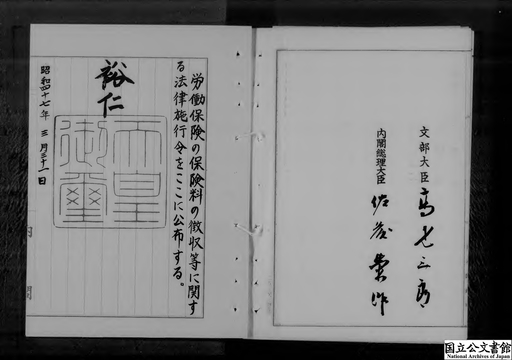 文部大臣 高見三郎
内閣総理大臣 佐藤榮作
労働保険の保険料の徴収等に関す
る法律施行令をここに公布する。
裕仁
天皇
御璽
昭和四十七年 三 月三十一日
国立公文書館
National Archives of Japan